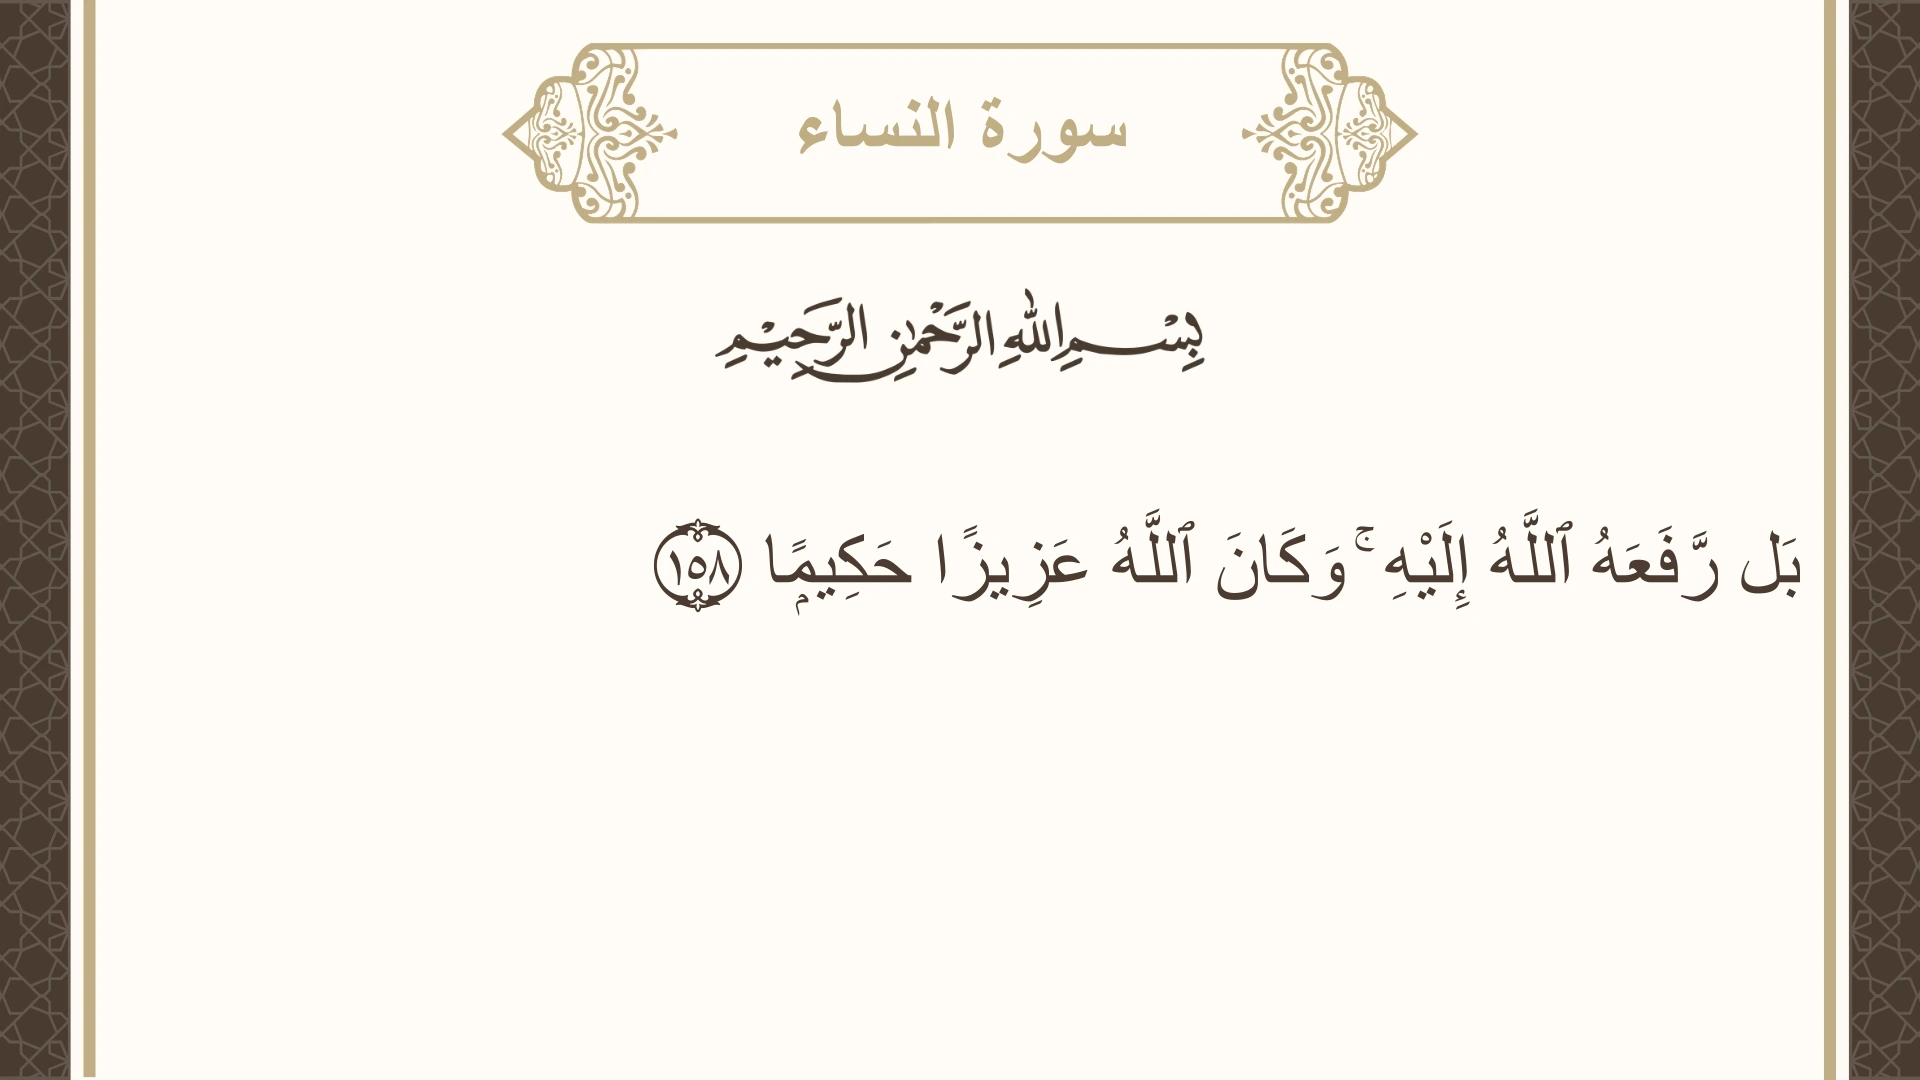 سورة النساء
بِسْمِ اللهِ الرَّحْمٰنِ الرَّحِيْمِ
بَل رَّفَعَهُ ٱللَّهُ إِلَيْهِ ۚ وَكَانَ ٱللَّهُ عَزِيزًا حَكِيمًۭا ١٥٨